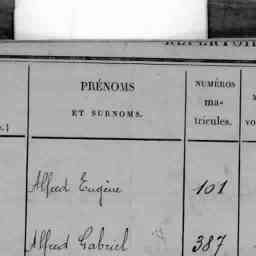 PRÉNOMS
ET SURNOMS.
NUMÉROS
ma-
tricules.
Alfred Eugène 101
Alfred Gabriel 387